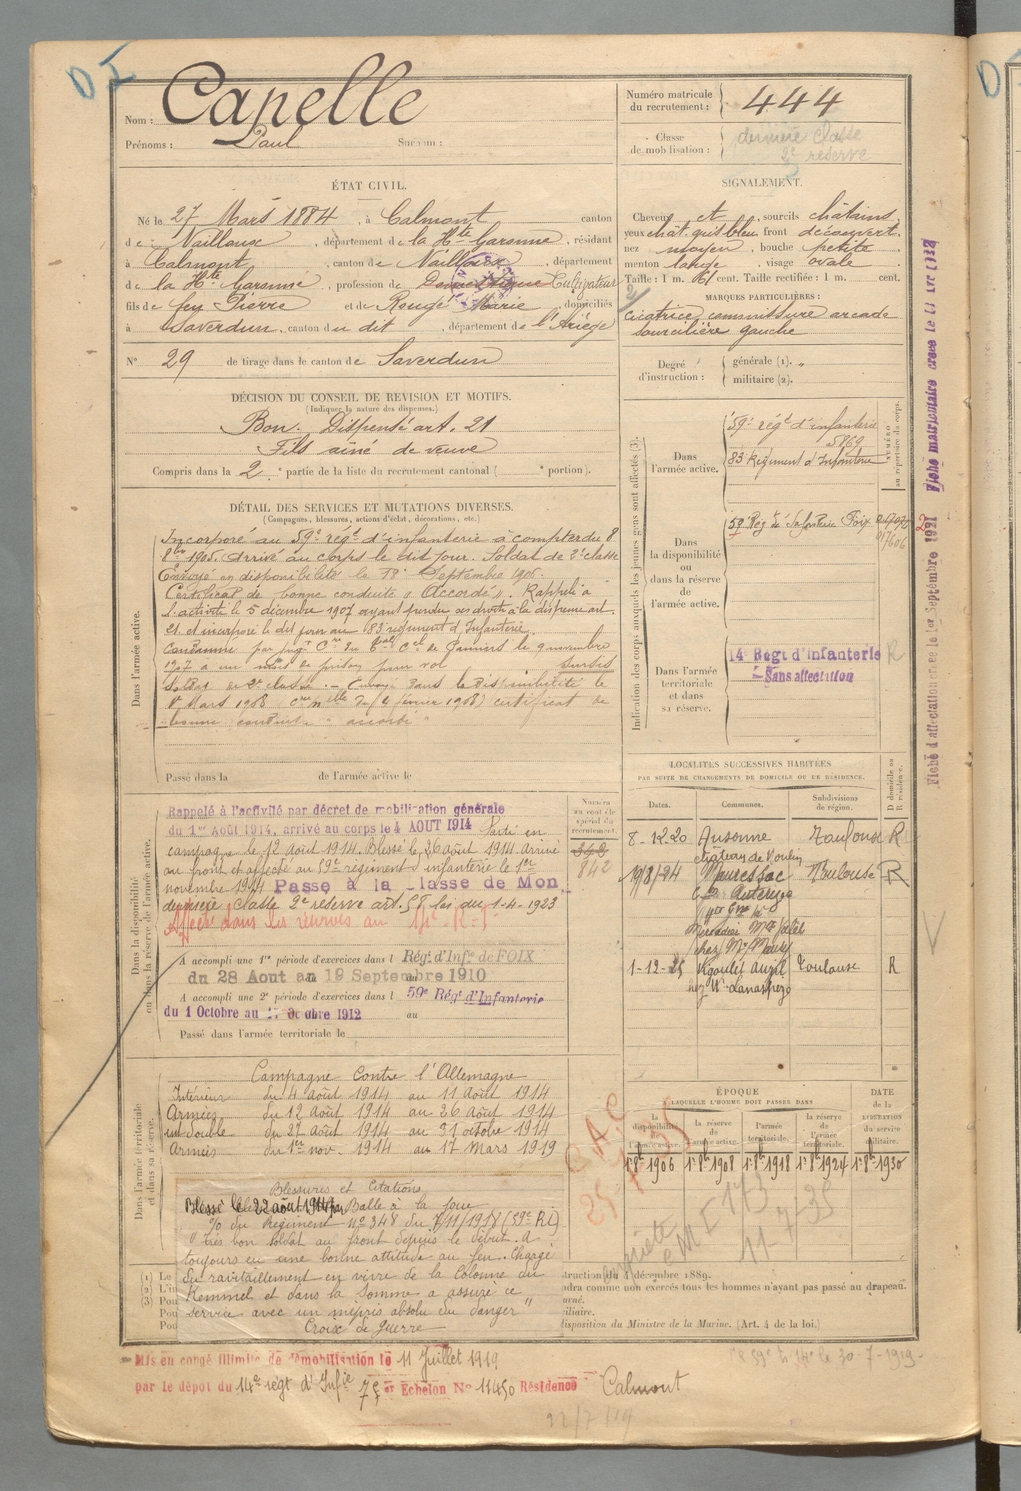 D I
Nom : Capelle
Prénoms : Paul Surnom :
Numéro matricule du recrutement : 444
Classe de mobilisation : dernière classe
2e réserve
ÉTAT CIVIL.
Né le 27 Mars 1884, à Calmont canton
de Nailloux, département de la Hte Garonne, résidant
à Calmont, canton de Nailloux département
de la Hte Garonne, profession de Domestique Cultivateur
fils de feu Pierre et de Rougé Marie, domiciliés
à Saverdun, canton du dit, département de l'Ariège
N° 29 de tirage dans le canton de Saverdun
SIGNALEMENT.
Cheveux et sourcils châtains,
yeux chât. gris bleu, front découvert,
nez moyen, bouche petite
menton large, visage ovale
Taille : 1 m. 61 cent. Taille rectifiée : 1 m. cent.
MARQUES PARTICULIÈRES :
cicatrice commissure arcade
sourcilière gauche
Degré d'instruction : générale (1). „
militaire (2).
DÉCISION DU CONSEIL DE REVISION ET MOTIFS.
(Indiquer la nature des dispenses.)
Bon. Dispensé art. 21
Fils aîné de veuve
Compris dans la 2e partie de la liste du recrutement cantonal ( e portion).
DÉTAIL DES SERVICES ET MUTATIONS DIVERSES.
(Campagnes, blessures, actions d'éclat, décorations, etc.)
Dans l'armée active.
Incorporé au 59e régt d'infanterie à compter du 8
8bre 1905. Arrivé au corps le dit jour. Soldat de 2e classe
Envoyé en disponibilité le 18 Septembre 1906.
Certificat de bonne conduite « Accordé ». Rappelé à
l'activité le 5 décembre 1907 ayant perdu ses droits à la dispense art.
21 et incorporé le dit jour au 83e régiment d'Infanterie.
Condamné par jugt Cre du Bal Cel de Pamiers le 9 novembre
1907 à un mois de prison pour vol sursis
Soldat de 2e classe. — Envoyé dans la disponibilité le
1er Mars 1908 (Cre nelle du (4 janvier 1908) certificat de
bonne conduite "accordé"
Passé dans la de l'armée active le
Indication des corps auxquels les jeunes gens sont affectés (3).
NUMÉRO au répertoire du corps.
Dans l'armée active.
59e régt d'infanterie
5869
83 Régiment d'Infanterie
Dans la disponibilité ou dans la réserve de l'armée active.
59 Reg de d'Infanterie Foix
Dans l'armée territoriale et dans sa réserve.
14e Régt d'infanterie R
Sans affectation
Fiche d'affectation créée le 1er Septembre 1921
Fiche matriculaire créée le 11 Avr 1932
LOCALITÉS SUCCESSIVES HABITÉES
PAR SUITE DE CHANGEMENTS DE DOMICILE OU DE RÉSIDENCE.
Dates. Communes. Subdivisions de région. D domicile ou R résidence.
8-12-20 Ausonne Toulouse R
château de
19/8/24 Mauressac Toulouse R
Auterive
chez Mr
1-12-25 Vigoulet Auzil Toulouse R
chez Mr
Dans la disponibilité ou dans la réserve de l'armée active.
Numéro au contrôle spécial du recrutement
842
Rappelé à l'activité par décret de mobilisation générale
du 1er Août 1914, arrivé au corps le 4 AOUT 1914 Parti en
campagne le 12 août 1914. Blessé le 26 août 1914 Arrivé
au front et affecté au 59e régiment d'infanterie le 1er
novembre 1914 Passé à la classe de Mon
dernière classe 2e réserve art. 58 loi du 1-4-1923
Affecté dans les réserves au 14e R. I.
A accompli une 1re période d'exercices dans l Régt d'Infie de FOIX
du 28 Aout au 19 Septembre 1910
A accompli une 2e période d'exercices dans l 59e Régt d'Infanterie
du 1 Octobre au 17 Octobre 1912 au
Passé dans l'armée territoriale le
Dans l'armée territoriale et dans sa réserve.
Campagne contre l'Allemagne
Intérieur du 4 août 1914 au 11 août 1914
Armées du 12 août 1914 au 26 août 1914
int double du 27 août 1914 au 31 octobre 1914
Armées du 1er nov. 1914 au 17 Mars 1919
Blessures et Citations
Blessé le 22 août 1914 par Balle à la joue
% du Régiment n° 348 du 7/11/1918 (59e RI)
"très bon soldat au front depuis le début. A
toujours eu une bonne attitude au feu. Chargé
du ravitaillement en vivre de la Colonne du
Kemmel et dans la Somme a assuré ce
service avec un mépris absolu du danger"
Croix de guerre
ÉPOQUE
À LAQUELLE L'HOMME DOIT PASSER DANS
la disponibilité de l'armée active. la réserve de l'armée active. l'armée territoriale. la réserve de l'armée territoriale.
DATE de la LIBÉRATION du service militaire.
1er 8bre 1906 1er 8bre 1908 1er 8bre 1918 1er 8bre 1924 1er 8bre 1930
C.A.C
25-7-35
EM I 173
11-7-35
(1) Le
(2) L'in
(3) Pou
Pou
Pou
struction du 4 décembre 1889.
ndra comme non exercés tous les hommes n'ayant pas passé au drapeau.
urné.
iliaire.
disposition du Ministre de la Marine. (Art. 4 de la loi.)
Mis en congé illimité de démobilisation le 11 Juillet 1919
par le dépot du 14e régt d'Infie 7e Echelon N° 11450 Résidence Calmont
59e le 30-7-1919
22/7/19